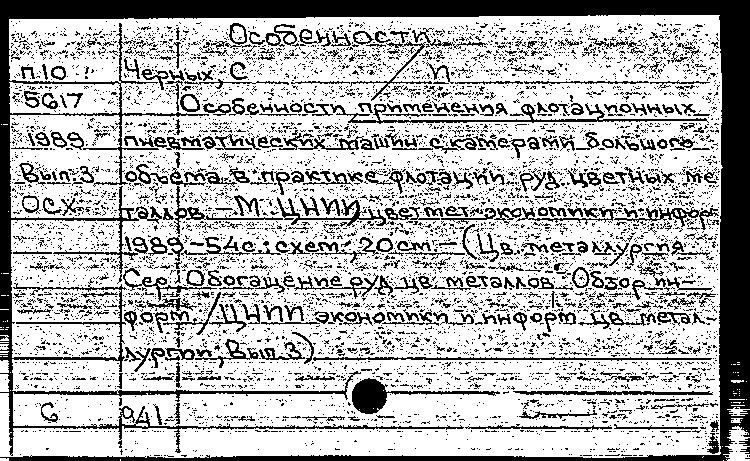 Особенности
П.10 Черных, С
5617 Особенности применения флотационных
1989 пневматических машин с камерами большого
Вып.3 объема в практике флотации руд цветных ме
ОСХ таллов. — М.: ЦНИИ цветмет экономики и инфор
1989. — 54с.: схем.; 20см. — (Цв. металлургия
Сер. Обогащение руд цв. металлов: Обзор. ин-
форм. / ЦНИИ экономики и информ. цв. метал-
лургии; Вып. 3)
С 941